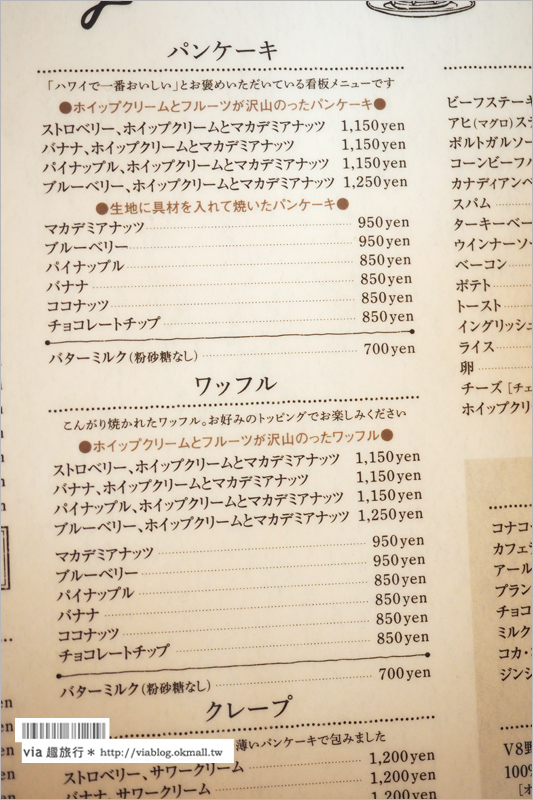 パンケーキ
「ハワイで一番おいしい」とお褒めいただいている看板メニューです
●ホイップクリームとフルーツが沢山のったパンケーキ●
ストロベリー、ホイップクリームとマカデミアナッツ 1,150yen
バナナ、ホイップクリームとマカデミアナッツ 1,150yen
パイナップル、ホイップクリームとマカデミアナッツ 1,150yen
ブルーベリー、ホイップクリームとマカデミアナッツ 1,250yen
●生地に具材を入れて焼いたパンケーキ●
マカデミアナッツ 950yen
ブルーベリー 950yen
パイナップル 850yen
バナナ 850yen
ココナッツ 850yen
チョコレートチップ 850yen
バターミルク(粉砂糖なし) 700yen
ワッフル
こんがり焼かれたワッフル。お好みのトッピングでお楽しみください
●ホイップクリームとフルーツが沢山のったワッフル●
ストロベリー、ホイップクリームとマカデミアナッツ 1,150yen
バナナ、ホイップクリームとマカデミアナッツ 1,150yen
パイナップル、ホイップクリームとマカデミアナッツ 1,150yen
ブルーベリー、ホイップクリームとマカデミアナッツ 1,250yen
マカデミアナッツ 950yen
ブルーベリー 950yen
パイナップル 850yen
バナナ 850yen
ココナッツ 850yen
チョコレートチップ 850yen
バターミルク(粉砂糖なし) 700yen
クレープ
薄いパンケーキで包みました
ストロベリー、サワークリーム 1,200yen
バナナ、サワークリーム 1,200yen
ビーフステーキ
アヒ(マグロ)ステ
ポルトガルソー
コーンビーフハ
カナディアンベ
スパム
ターキーベー
ウインナーソー
ベーコン
ポテト
トースト
イングリッシュ
ライス
卵
チーズ [チェ
ホイップクリ
コナコー
カフェラ
アール
プラン
チョコ
ミルク
コカ・
ジンジ
V8野
100%
via 趣旅行＊ http://viablog.okmall.tw